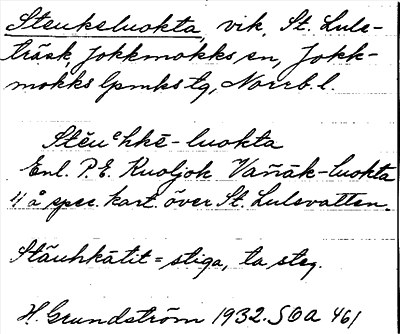 Steukeluokta, vik, St. Lule-
träsk, Jokkmokks sn, Jokk-
mokks lpmks tg, Norrb. l.
Stĕuᵉhkē-luokta
Enl. P.E. Kuoljok Vaññăk-luokta
å spec. kart. över St. Lulevatten.
Stăuhkătit = stiga, ta steg.
H. Grundström 1932. SOA 461